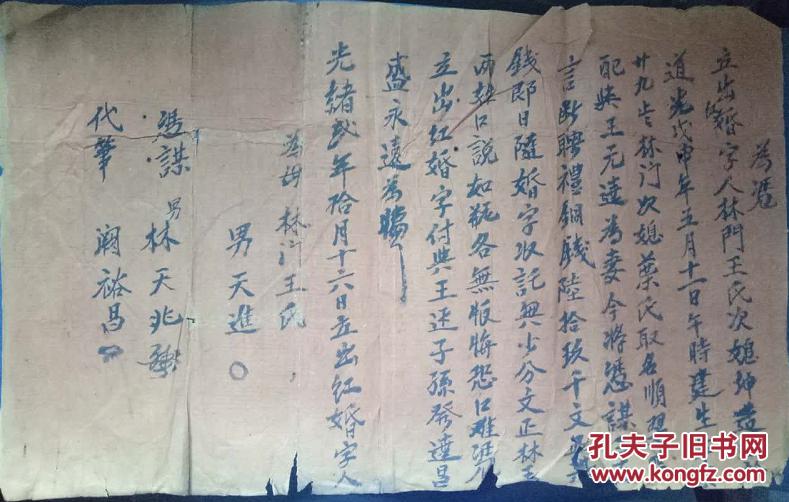 為憑
立出婚字人林門王氏次媳坤造
道光戊申年五月十一日午時建生
廿九歲林門次媳葉氏取名順
配與王元達為妻今將憑謀
言断聘禮銅錢陸拾玖千文
錢即日隨婚字收訖無少分文正林王
兩造口說如瓶各無恨悔恐口难準
立出紅婚字付與王廷子孫發達昌
盛永遠為
光緒弍年拾月十六日立出紅婚字人
林门王氏
男天進
憑謀 男林天兆
代筆 裕昌
孔夫子旧书网
www.kongfz.com